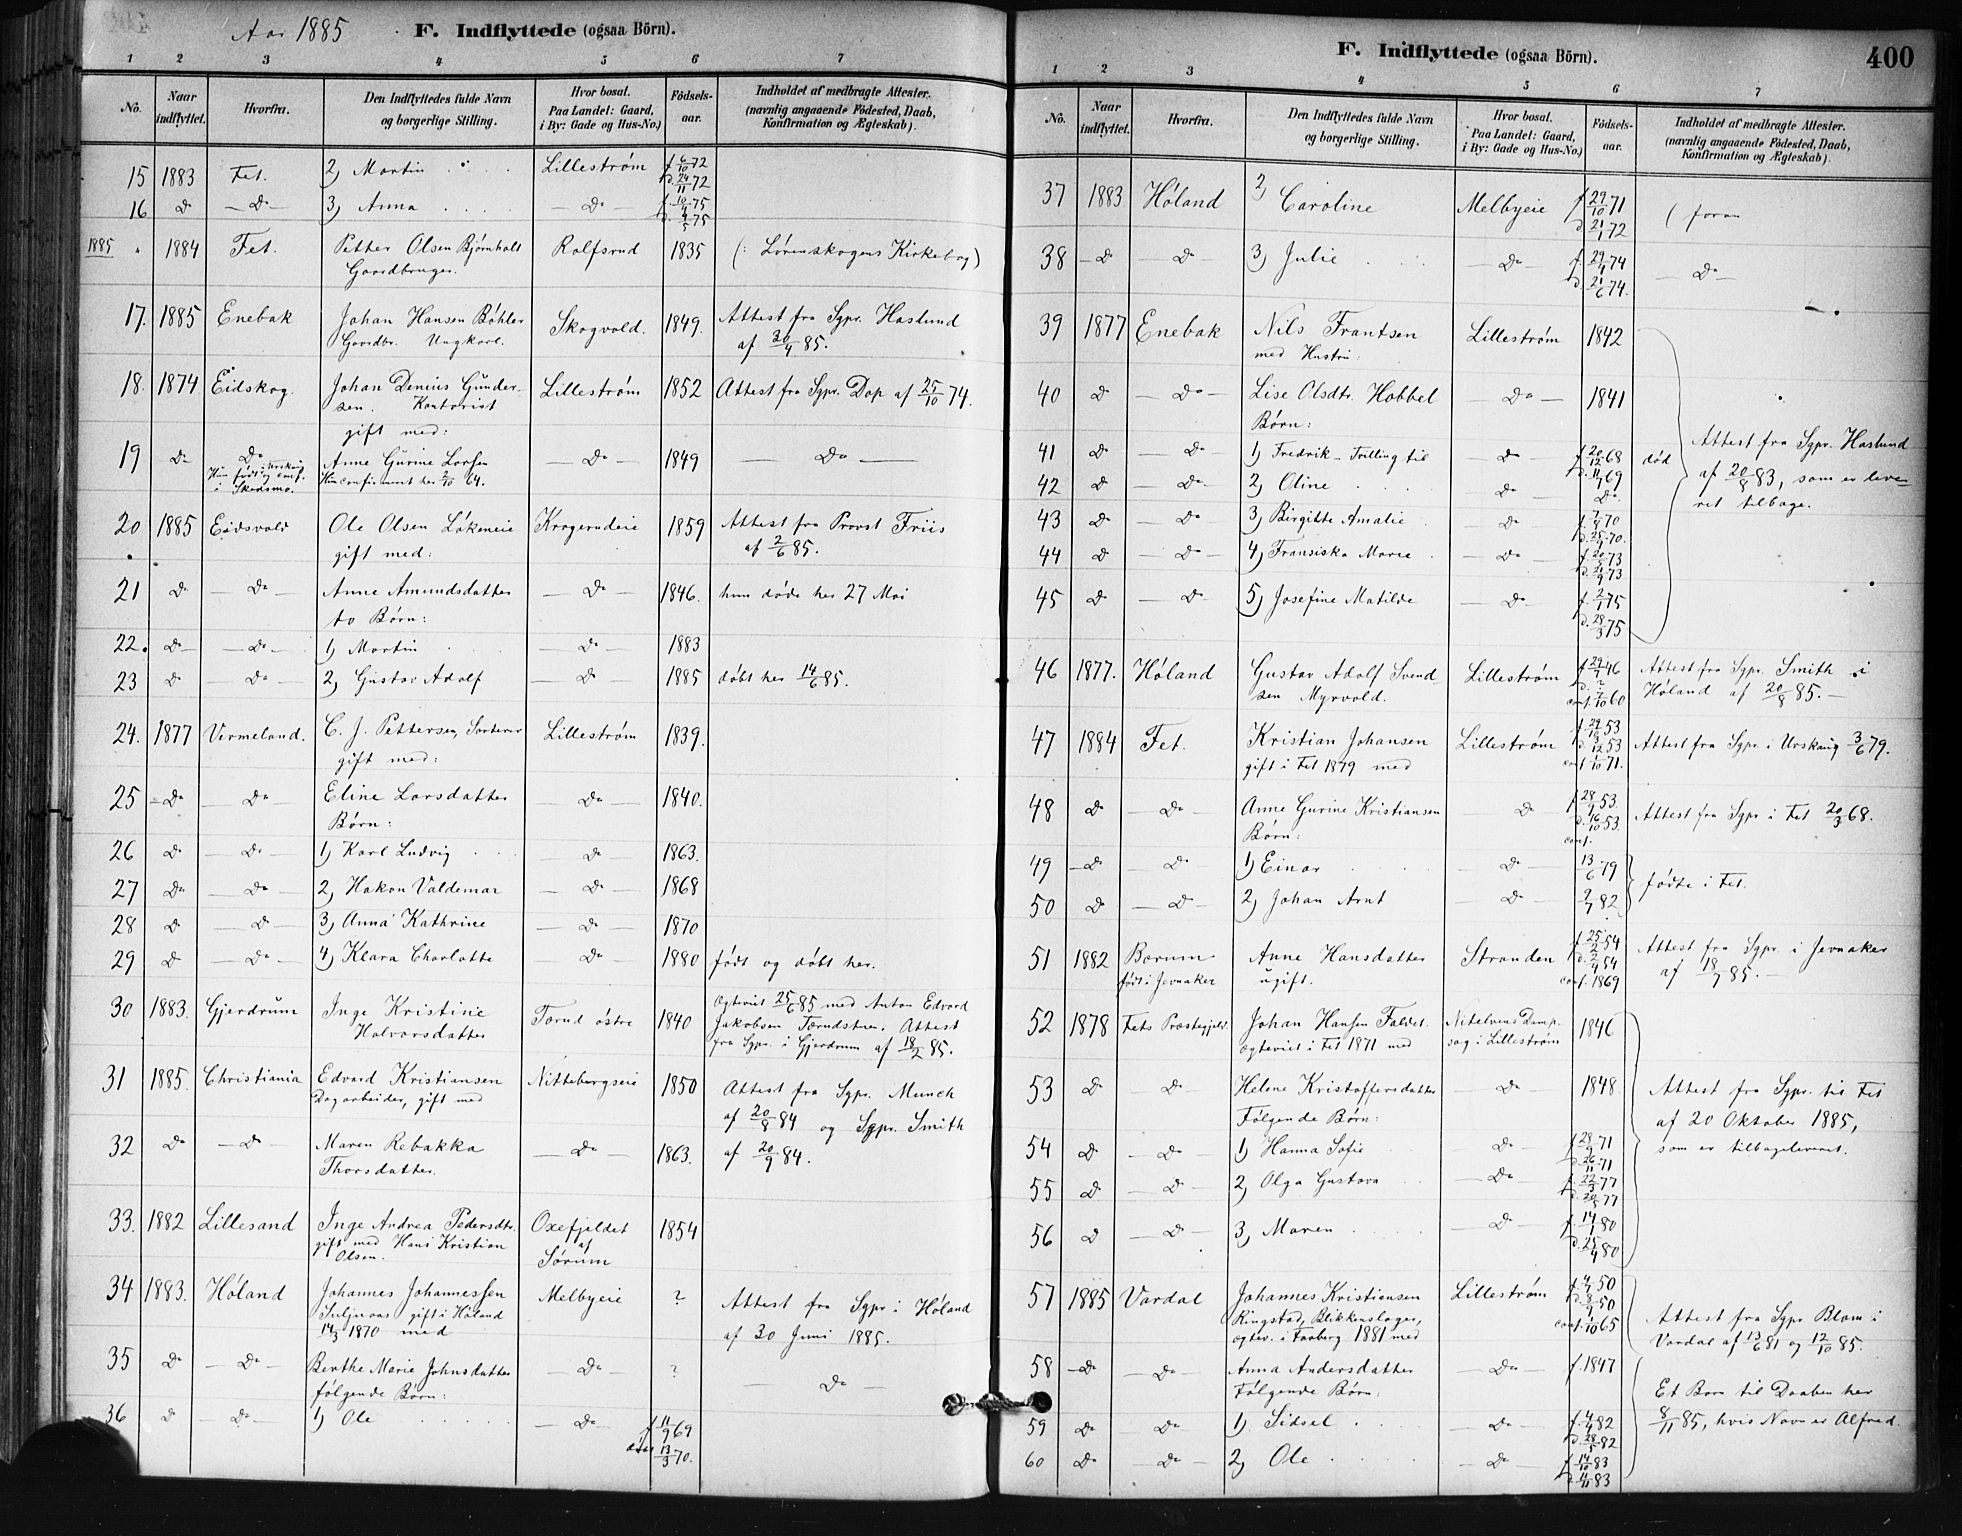 Aar 1885
F. Indflyttede (ogsaa Börn).
1 2 3 4 5 6 7
No.
Naar indflyttet.
Hvorfra.
Den Indflyttedes fulde Navn og borgerlige Stilling.
Hvor bosat. Paa Landet: Gaard, i By: Gade og Hus-No.)
Fødsels-aar.
Indholdet af medbragte Attester. (navnlig angaaende Födested, Daab, Konfirmation og Ægteskab).
15 1883 Fet. 2) Martin Lillestrøm f 6/10 72 d. 24/11 72
16 Do — Do — 3) Anna — Do — f. 10/4 75 d. 4/5 75
1885 1884 Fet. Petter Olsen Bjørnholt Rolfsrud 1835 (: Lørenskogens Kirkebog)
Gaardbruger.
17. 1885 Enebak Johan Hansen Bøhler Skogvold. 1849. Attest fra Sgpr. Haslund
Gaardbr. Ungkarl. af 30/4 85.
18. 1874 Eidskog. Johan Denius Gunder- Lillestrøm 1852 Attest fra Sgpr. Dop af 25/10 74.
sen. Kontorist
gift med:
19 Do Do Anne Gurine Larsen — Do — 1849 — Do —
Hun født i Urskoug og conf. i Skedsmo. Hun confirmeret her 2/10 64.
20 1885 Eidsvold Ole Olsen Løkeneie Krogerudeie 1859 Attest fra Provst Friis
gift med: af 2/6 85.
21 Do — Do — Anne Amundsdatter — Do — 1846. hun døde her 27 Mai
to Børn:
22. Do — Do — 1) Martin — Do — 1883
23 Do — Do — 2) Gustav Adolf — Do — 1885 døbt her 14/6 85.
24. 1877 Vermeland. C. J. Pettersen, Sorterer Lillestrøm 1839.
gift med:
25 — Do — Do — Eline Larsdatter — Do — 1840.
Børn:
26 Do — Do — 1) Karl Ludvig — Do — 1863.
27 Do — Do — 2) Hakon Valdemar — Do — 1868
28 Do — Do — 3) Anna Kathrine — Do — 1870
29 Do — Do — 4) Klara Charlotte — Do — 1880 født og døbt her.
30 1883. Gjerdrum Inge Kristine Tærud østre 1840 Ægteviet 25/6 85 med Anton Edvard
Halvorsdatter Jakobsen Tærudstuen. Attest
fra Sgpr. i Gjerdrum af 18/2 85.
31 1885. Christiania Edvard Kristiansen Nittebergseie 1850 Attest fra Sgpr. Munch
Dagarbeider, gift med af 20/8 84 og Sgpr. Smith
32 Do — Do — Maren Rebakka — Do — 1863. af 20/9 84.
Thorsdatter.
33. 1882 Lillesand Inge Andrea Pedersdtr. Oxefjeldet 1854
gift med Hans Kristian af
Olsen. Sørum
34 1883. Høland Johannes Johannessen Melbyeie ? Attest fra Sgpr i Høland
gift i Høland af 30 Juni 1885.
14/3 1870 med
35 Do — Do — Berthe Marie Johnsdatter — Do — ? — Do —
følgende Børn:
36 Do — Do — 1) Ole — Do — f 11/9 69
døbt 13/3 70.
F. Indflyttede (ogsaa Börn).
400
1 2 3 4 5 6 7
No.
Naar indflyttet.
Hvorfra.
Den Indflyttedes fulde Navn og borgerlige Stilling.
Hvor bosat. Paa Landet: Gaard, i By: Gade og Hus-No.)
Fødsels-aar.
Indholdet af medbragte Attester. (navnlig angaaende Födested, Daab, Konfirmation og Ægteskab).
37 1883 Høland 2) Caroline Melbyeie f 29/10 71 d 21/1 72 ( foran
38 — Do — Do — 3) Julie — Do — f. 29/4 74 d. 21/6 74. — Do —
39 1877 Enebak Nils Frantsen Lillestrøm 1842
med Hustru:
40 Do — Do — Lise Olsdtr. Hobbel — Do — 1841
Børn:
41 Do — Do — 1) Fredrik - Tvilling til — Do f 20/12 68 d. 11/4 69 død Attest fra Sgpr. Haslund
42 Do — Do — 2) Oline — Do — Do. af 20/8 83, som er leve-
43 Do — Do — 3) Birgitte Amalie — Do — f. 7/7 70 d. 25/9 70. ret tilbage.
44 Do — Do — 4) Fransiska Marie — Do — f 20/5 73 d. 21/9 73
45 Do — Do — 5) Josefine Matilde — Do — f. 2/1 75 d. 28/3 75
46 1877. Høland Gustav Adolf Svend- Lillestrøm f 29/7 46 d. ? Attest fra Sgpr. Smith i
sen Myrvold. conf. 7/10 60 Høland af 20/8 85. —
47 1884 Fet. Kristian Johansen Lillestrøm f. 29/10 53 d. 13/12 53 Attest fra Sgpr. i Urskaug 3/6 79.
gift i Fet 1879 med conf. 1/10 71.
48 Do — Do — Anne Gurine Kristiansen Do — f 28/7 53. d. 16/10 53. Attest fra Sgpr i Fet 20/3 68.
Børn: conf.
49 — Do — Do — 1) Einar — Do — 13/6 79
50 Do — Do — 2) Johan Arnt — Do — 2/7 82 fødte i Fet.
51 1882 Bærum Anne Hansdatter Stranden f 25/2 54 d. 2/4 54 Attest fra Sgpr. i Jevnaker
født i Jevnaker ugift. conf. 1869 af 18/7 85. —
52 1878 Fets Præstegjeld. Johan Hansen Faldet. Nitelvens Damp- 1846
ægteviet i Fet 1871 med sag i Lillestrøm
53 Do — Do — Helene Kristoffersdatter — Do — 1848 Attest fra Sgpr. til Fet
Følgende Børn: af 20 Oktober 1885,
54 Do — Do — 1) Hanna Sofie — Do — f 28/9 71 d. 26/11 71 som er tilbageleveret.
55 Do — Do — 2) Olga Gustava — Do — f. 22/3 77 d. 20/5 77
56 Do — Do — 3) Maren — Do — f. 14/1 80 d. 25/4 80
57 1885 Vardal Johannes Kristiansen Lillestrøm f. 4/7 50 d. 8/7 50 Attest fra Sgpr Blom i
Ringstad, Blikkenslager, conf. 1/10 65 Vardal af 13/6 81 og 12/10 85.
ægtev. i Faaberg 1881 med
58 — Do — Do — Anna Andersdatter — Do — f. 1847
Følgende Børn: Et Barn til Daaben her
59 Do — Do — 1) Sidsel — Do — f. 4/4 82 d. 28/5 82 8/11 85, hvis Navn er Alfred.
60 Do — Do — 2) Ole — Do — f 14/10 83 d. 11/11 83